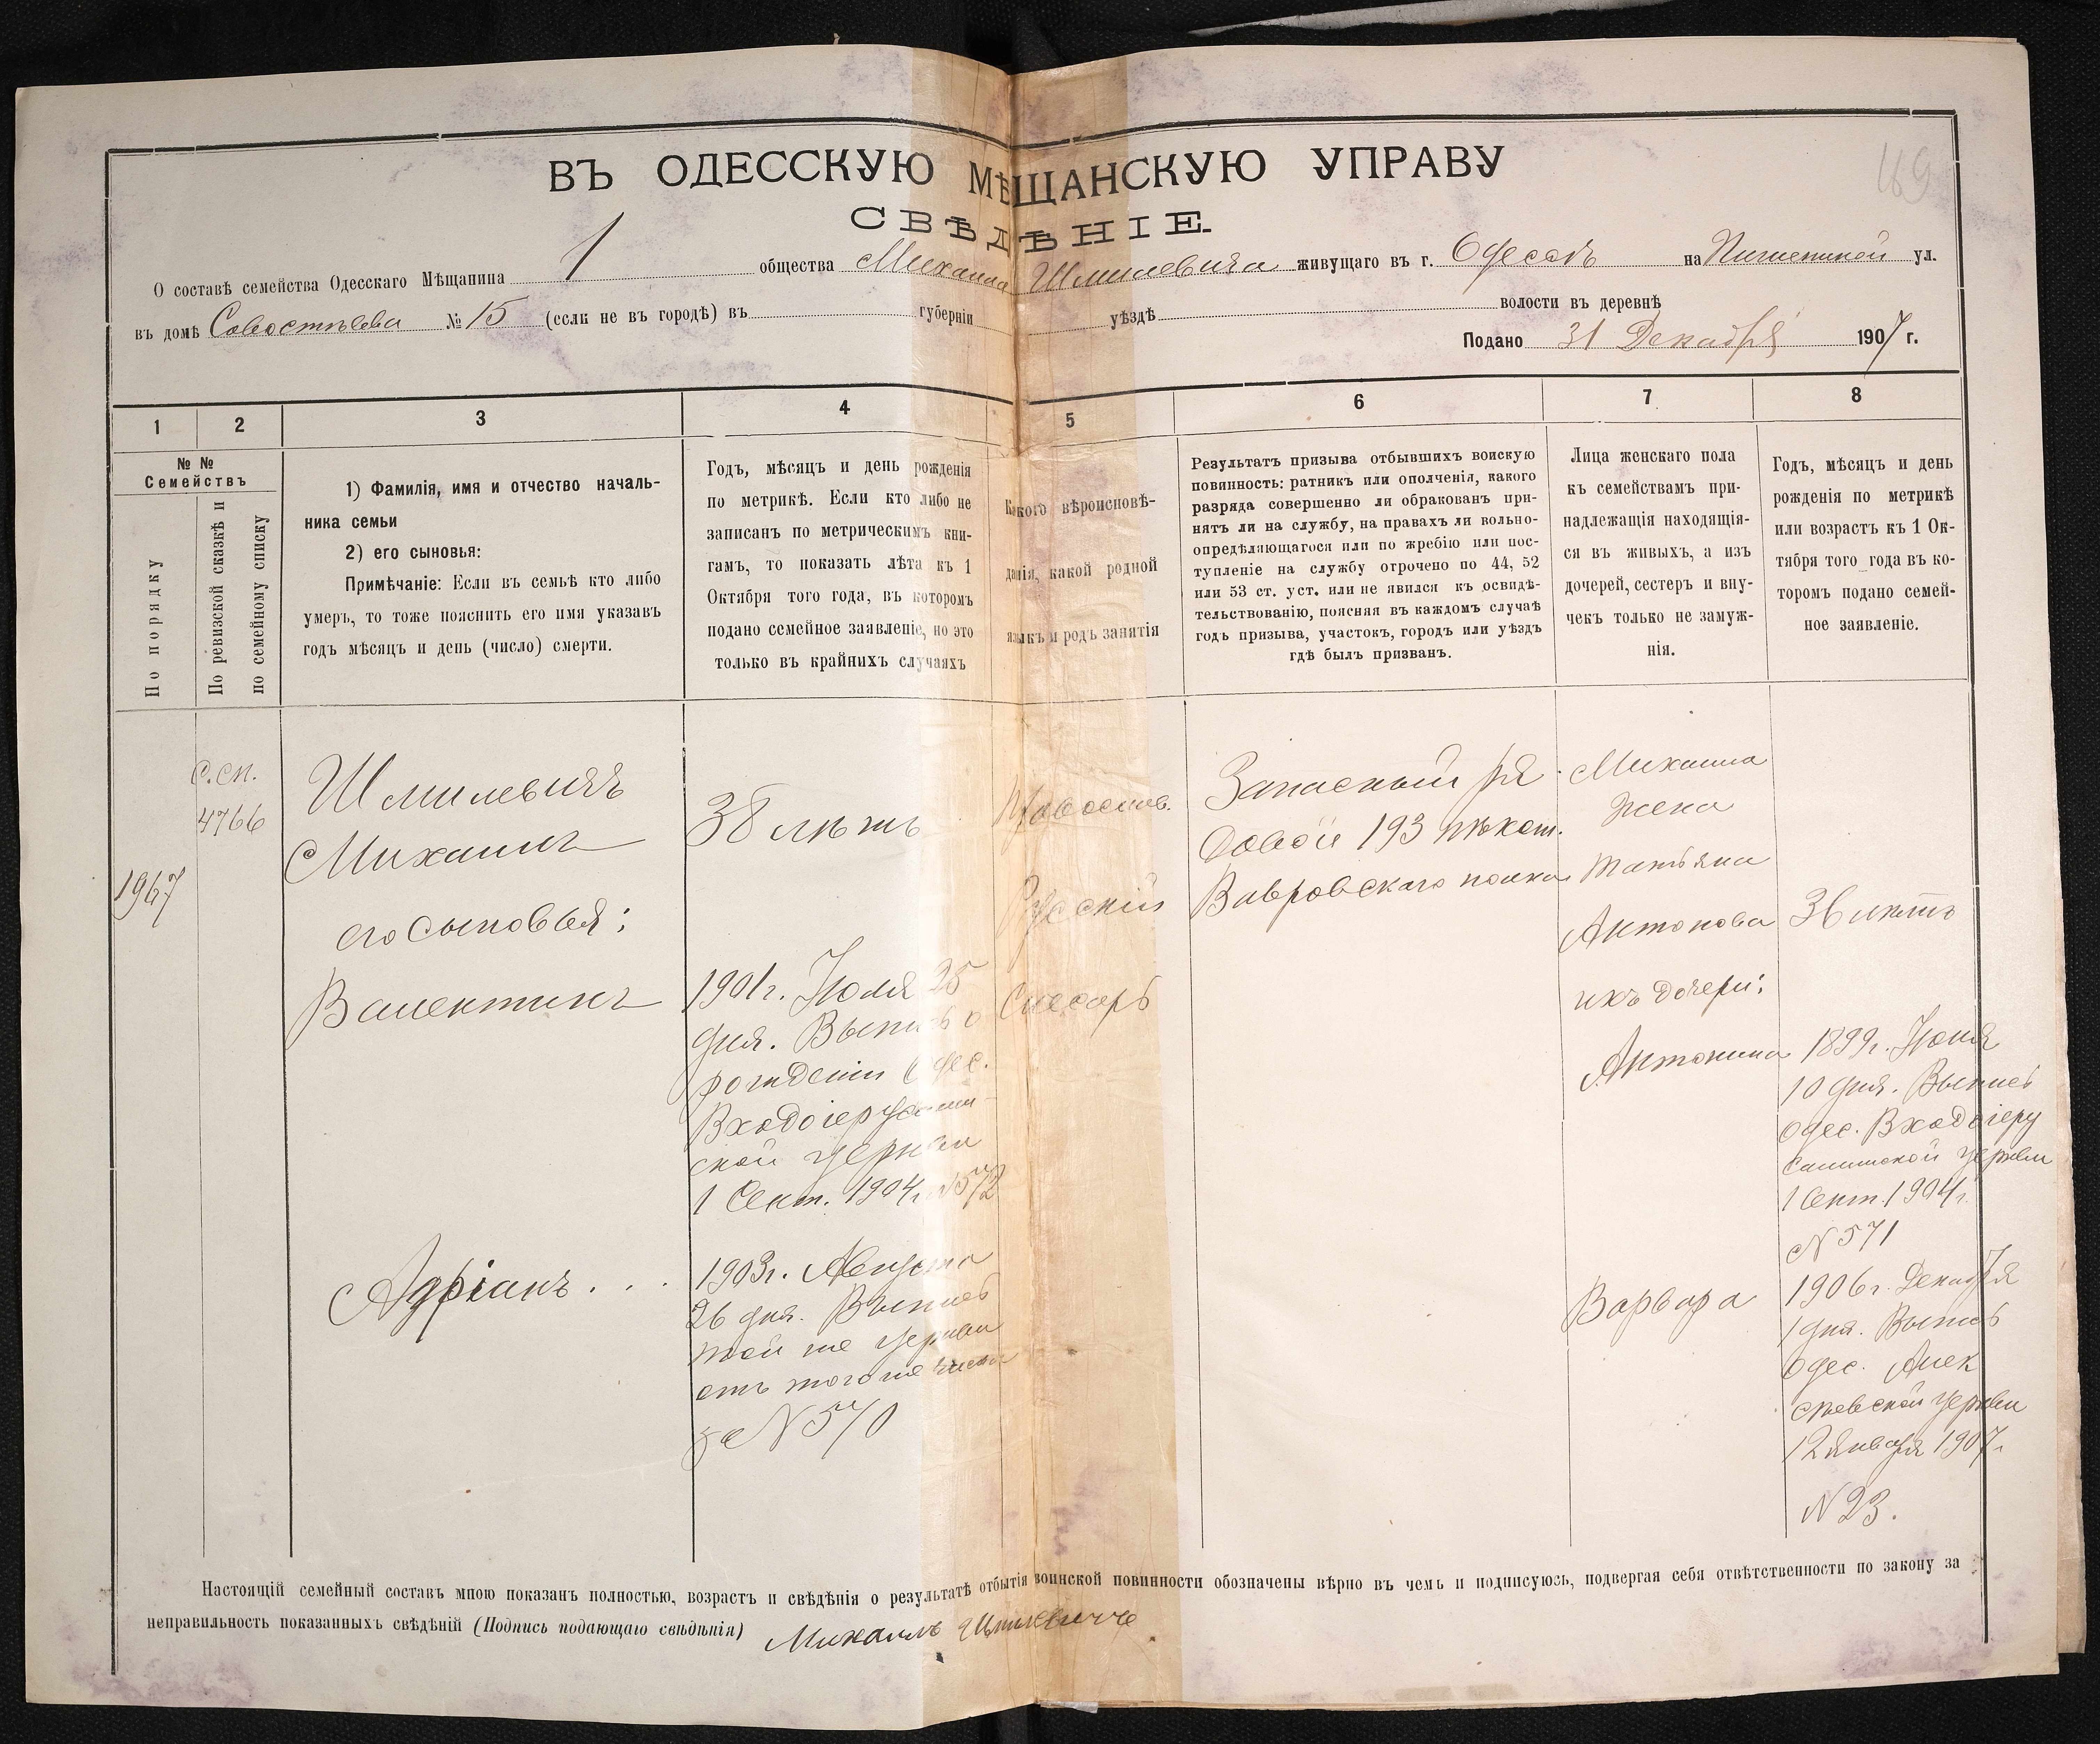 ВЪ ОДЕССКУЮ МѢЩАНСКУЮ УПРАВУ
169
СВѢДѢНІЕ.
О составѣ семейства Одесскаго Мѣщанина 1 общества Михаила Шмилевича живущаго въ г. Одессѣ на ул.
въ домѣ № 15 (если не въ городѣ) въ губерніи уѣздѣ волости въ деревнѣ
Подано 31 Декабря 1907 г.
1 2 3 4 5 6 7 8
№ №
Семействъ
По порядку
По ревизской сказкѣ и
по семейному списку
1) Фамилія, имя и отчество началь-
ника семьи
2) его сыновья:
Примѣчаніе: Если въ семьѣ кто либо
умеръ, то тоже пояснить его имя указавъ
годъ мѣсяцъ и день (число) смерти.
Годъ, мѣсяцъ и день рожденія
по метрикѣ. Если кто либо не
записанъ по метрическимъ кни-
гамъ, то показать лѣта къ 1
Октября того года, въ которомъ
подано семейное заявленіе, но это
только въ крайнихъ случаяхъ
Какого вѣроисповѣ-
данія, какой родной
языкъ и родъ занятія
Результатъ призыва отбывшихъ воискую
повинность: ратникъ или ополченія, какого
разряда совершенно ли обракованъ при-
нятъ ли на службу, на правахъ ли вольно-
опредѣляющагося или по жребію или пос-
тупленіе на службу отрочено по 44, 52
или 53 ст. уст. или не явился къ освидѣ-
тельствованію, поясняя въ каждомъ случаѣ
годъ призыва, участокъ, городъ или уѣздъ
гдѣ былъ призванъ.
Лица женскаго пола
къ семействамъ при-
надлежащія находящія-
ся въ живыхъ, а изъ
дочерей, сестеръ и вну-
чекъ только не замуж-
нія.
Годъ, мѣсяцъ и день
рожденія по метрикѣ
или возрастъ къ 1 Ок-
тября того года въ ко-
торомъ подано семей-
ное заявленіе.
1967
с.сп.
4766
Шмилевичъ
Михаилъ
его сыновья:
Валентинъ
Адріанъ . . .
38 лѣтъ
1901г. Іюля 25
дня. Выпись о
рожденіи Одес.
Входоіерусалим-
ской церкви
1 Сент. 1904г. №572
1903г. Августа
26 дня. Выпись
той же церкви
отъ того же числа
за №570
Православ.
Русскій
Слесарь
Запасный ря-
довой 193 пѣхот.
полка
Михаила
жена
Татьяна
Антонова
ихъ дочери:
Антонина
Варвара
36 лѣтъ
1899г. Іюня
10 дня. Выпись
Одес. Входоіеру
салимской церкви
1 Сент. 1904г.
№571
1906г. Декабря
1 дня. Выпись
Одес. Алек
сѣевской церкви
12 Января 1907г.
№23.
Настоящій семейный составъ мною показанъ полностью, возрастъ и свѣдѣнія о результатѣ отбытія воинской повинности обозначены вѣрно въ чемъ и подписуюсь, подвергая себя отвѣтственности по закону за
неправильность показанныхъ свѣдѣній (Подпись подающаго свѣдѣнія) Михаилъ Шмилевичъ